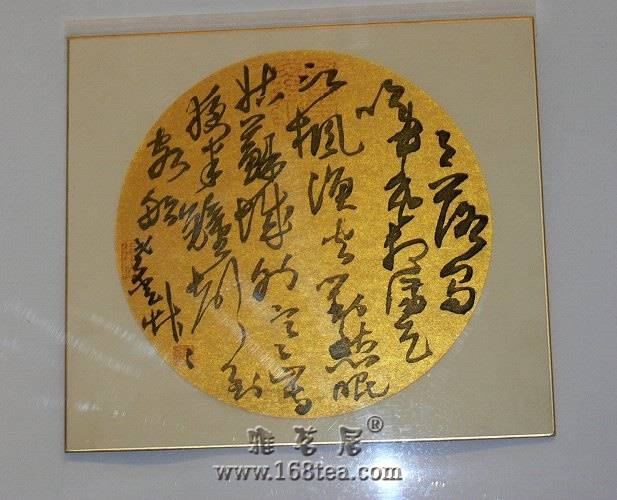 月落烏
啼霜滿天
江楓漁火對愁眠
姑蘇城外寒山寺
夜半鐘聲到
客船
雅茗居®
www.168tea.com